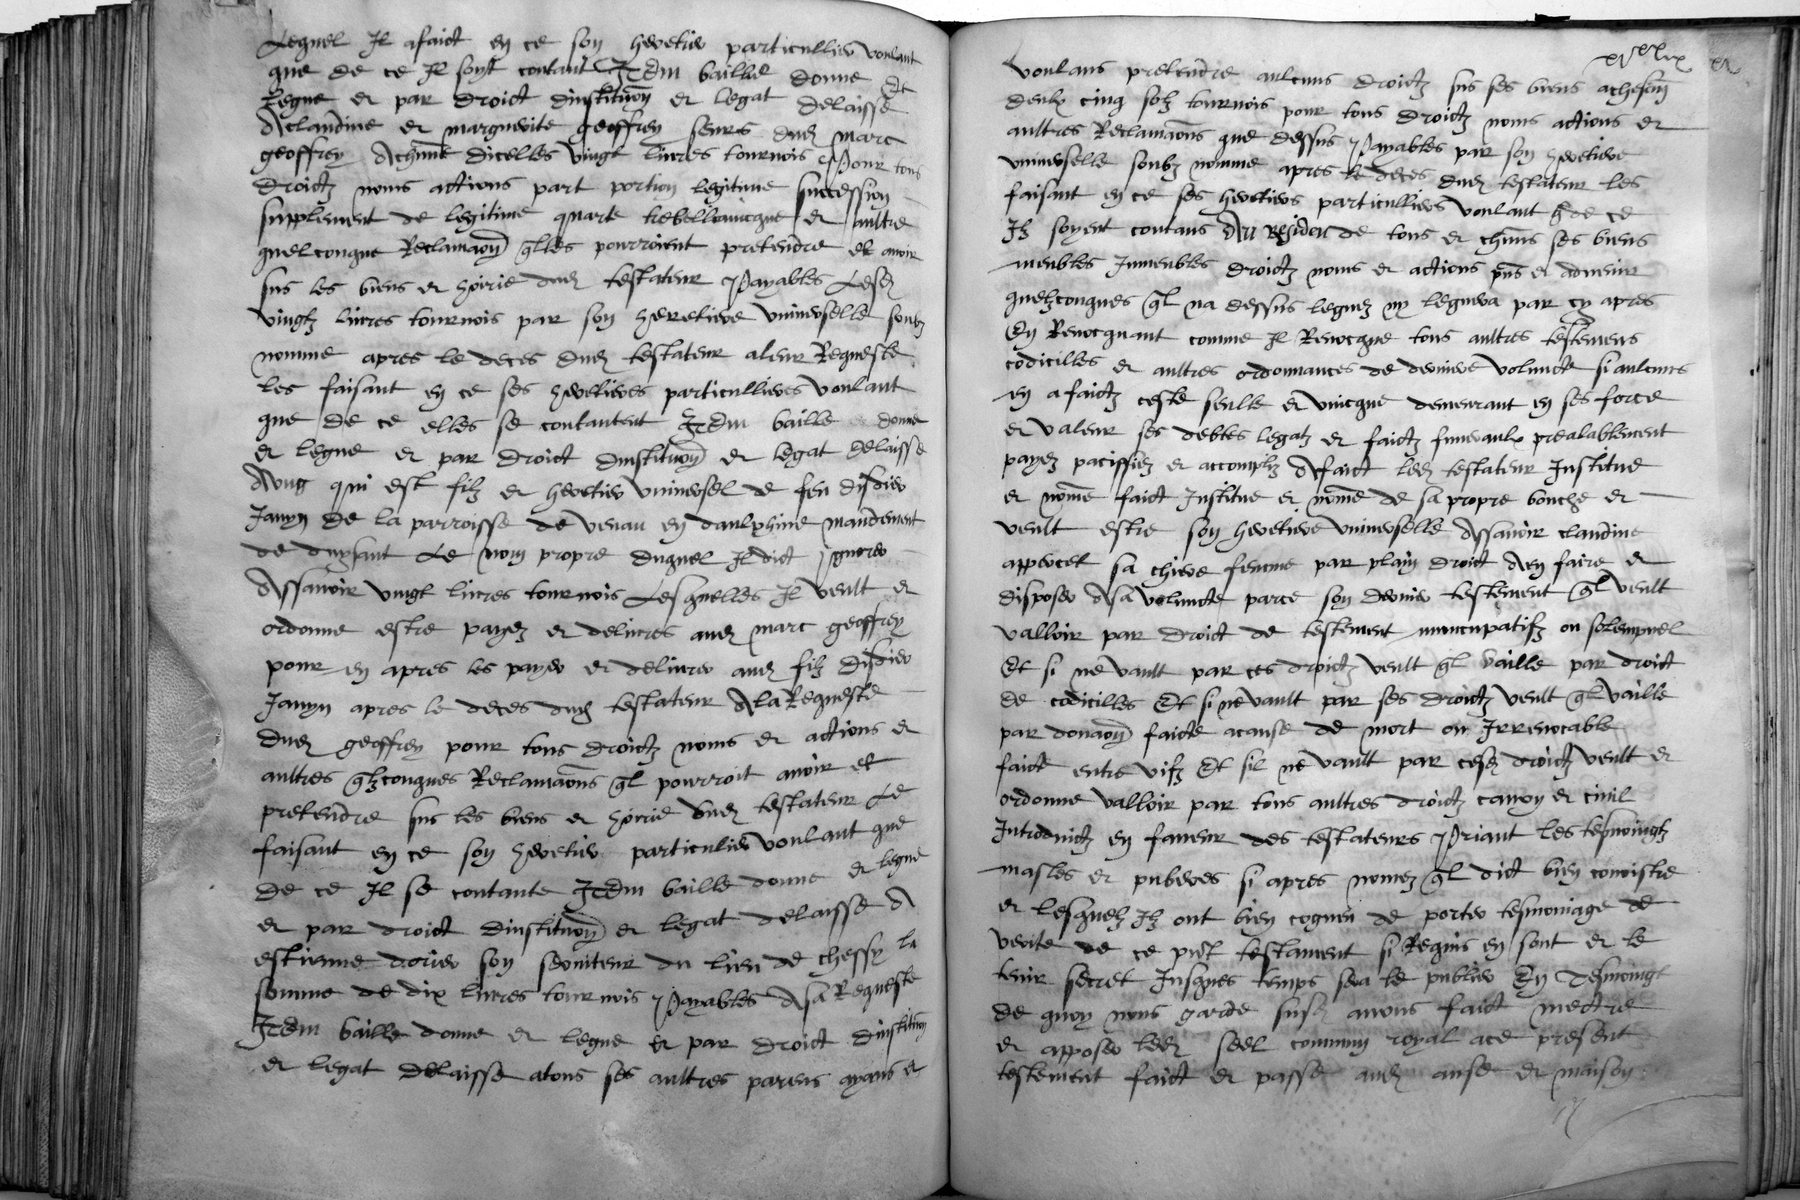 Lequel Il afaict en ce son heretier particullier voulant
que de ce Il soyt contant Item baille donne et
legue et par droict dinstituon et legat delaisse
A claudine et marguerite geoffrey seurs dud marc
geoffrey Achune dicelles vingt livres tournois Pour tous
droictz noms actions part portion legitime succession
supplement de legitime quarte trebellianicque et aultre
quelconque Reclamaon qlles pourroient pretendre et avoir
sus les biens et hoirie dud testateur Payables Lesd
vingtz livres tournois par son heretiere universelle soubz
nomme apres le deces dud testateur aleur Requeste
les faisant en ce ses heretieres particullieres voulant
que de ce elles se contantent Item baille donne
et legue et par droict dinstituon et legat delaisse
A ung qui est filz et heretier universel de feu disdier
Janyn de la parroisse de venau en daulphine mandement
de Le nom propre duquel Il dict ignorer
Assavoir vingt livres tournois Lesquelles Il veult et
ordonne estre payez et delivres aud marc geoffrey
pour en apres les payer et delivrer aud filz disdier
Janyn apres le deces dud testateur A la Requeste
dud geoffrey pour tous droictz noms et actions et
aultres qlzconques Reclamaons ql pourroit avoir et
pretendre sus les biens et hoirie dud testateur Le
faisant en ce son heretier particulier voulant que
de ce Il se contante Item baille donne et legue
et par droict dinstituon et legat delaisse A
estienne dorier son serviteur du lieu de chessy la
somme de dix livres tournois Payables A sa Requeste
Item baille donne et legue et par droict dinstituon
et legat delaisse atous ses aultres parens ayans et
voulans pretendre aulcuns droictz sus ses biens achescun
deulx cinq solz tournois pour tous droictz noms actions et
aultres Reclamaons que dessus Payables par son heretiere
universelle soubz nomme apres le deces dud testateur les
faisant en ce ses heretiers particulliers voulant q de ce
Ilz soyent contans Au residu de tous et chuns ses biens
meubles Immeubles droictz noms et actions pns et advenir
quelzconques ql na dessus leguez ny leguera par cy apres
En Revocquant comme Il Revocque tous aultres testemens
codicilles et aultres ordonnances de derniere volunte si aulcuns
en a faictz ceste seulle et unicque demeurant en ses force
et valeur ses debtes legatz et faictz funeraulx prealablement
payez paciffiez et accompliz A faict led testateur Institue
et nome faict Institue et nome de sa propre bouche et
veult estre son heretiere universelle Assavoir claudine
appercel sa chiere femme par plain droict A en faire et
disposer A sa volunte parce son dernier testement ql veult
valloir par droict de testement nuncupatifz ou solempnel
Et si ne vault par ces droictz veult ql vaille par droict
de codicilles Et si ne vault par ses droictz veult ql vaille
par donaon faicte acause de mort ou Irrevocable
faict entre vifz Et sil ne vault par cesd droictz veult et
ordonne valloir par tous aultres droictz canon et civil
Introduictz en faveur des testateurs Priant les tesmoingtz
masles et puberes si apres nomez ql dict bien connoistre
et lesquelz Ilz ont bien cogneu de porter tesmoniage de
verite de ce pnt testament si Requis en sont et le
tenir secret Jusques temps sera le publier En Tesmoingt
de quoy nous garde susd avons faict mectre
et apposer led seel commun royal ace present
testement faict et passe aud anse et maison